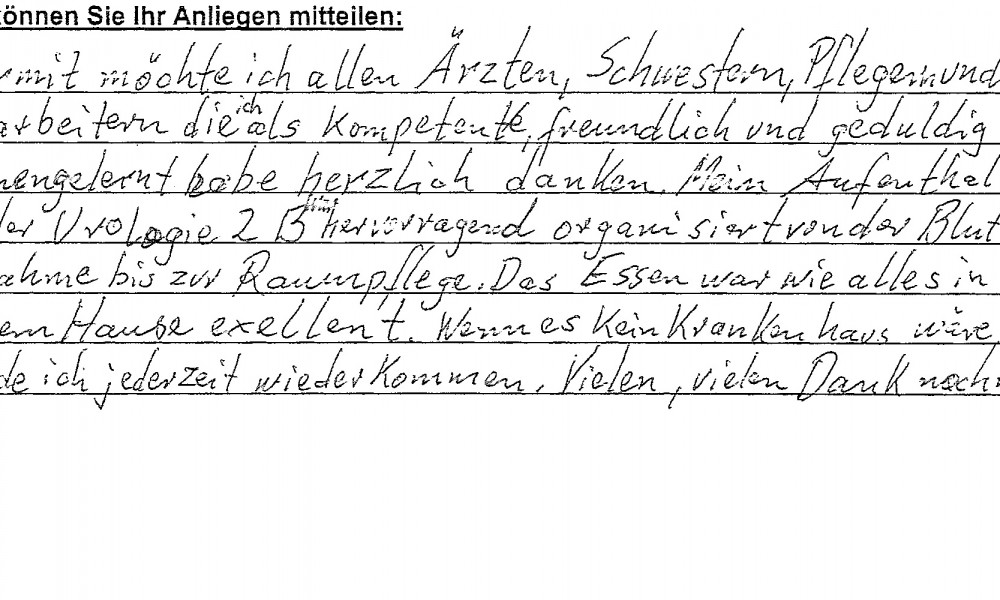 können Sie Ihr Anliegen mitteilen:
rmit möchte ich allen Ärzten, Schwestern, Pflegern und
arbeitern die ich als kompetente, freundlich und geduldig
nengelernt habe herzlich danken. Mein Aufenthal
der Urologie 2 B hervorragend organisiert von der Blut
ahme bis zur Raumpflege. Das Essen war wie alles in
em Hause exellent. Wenn es kein Krankenhaus wäre,
de ich jederzeit wiederkommen. Vielen, vielen Dank noch